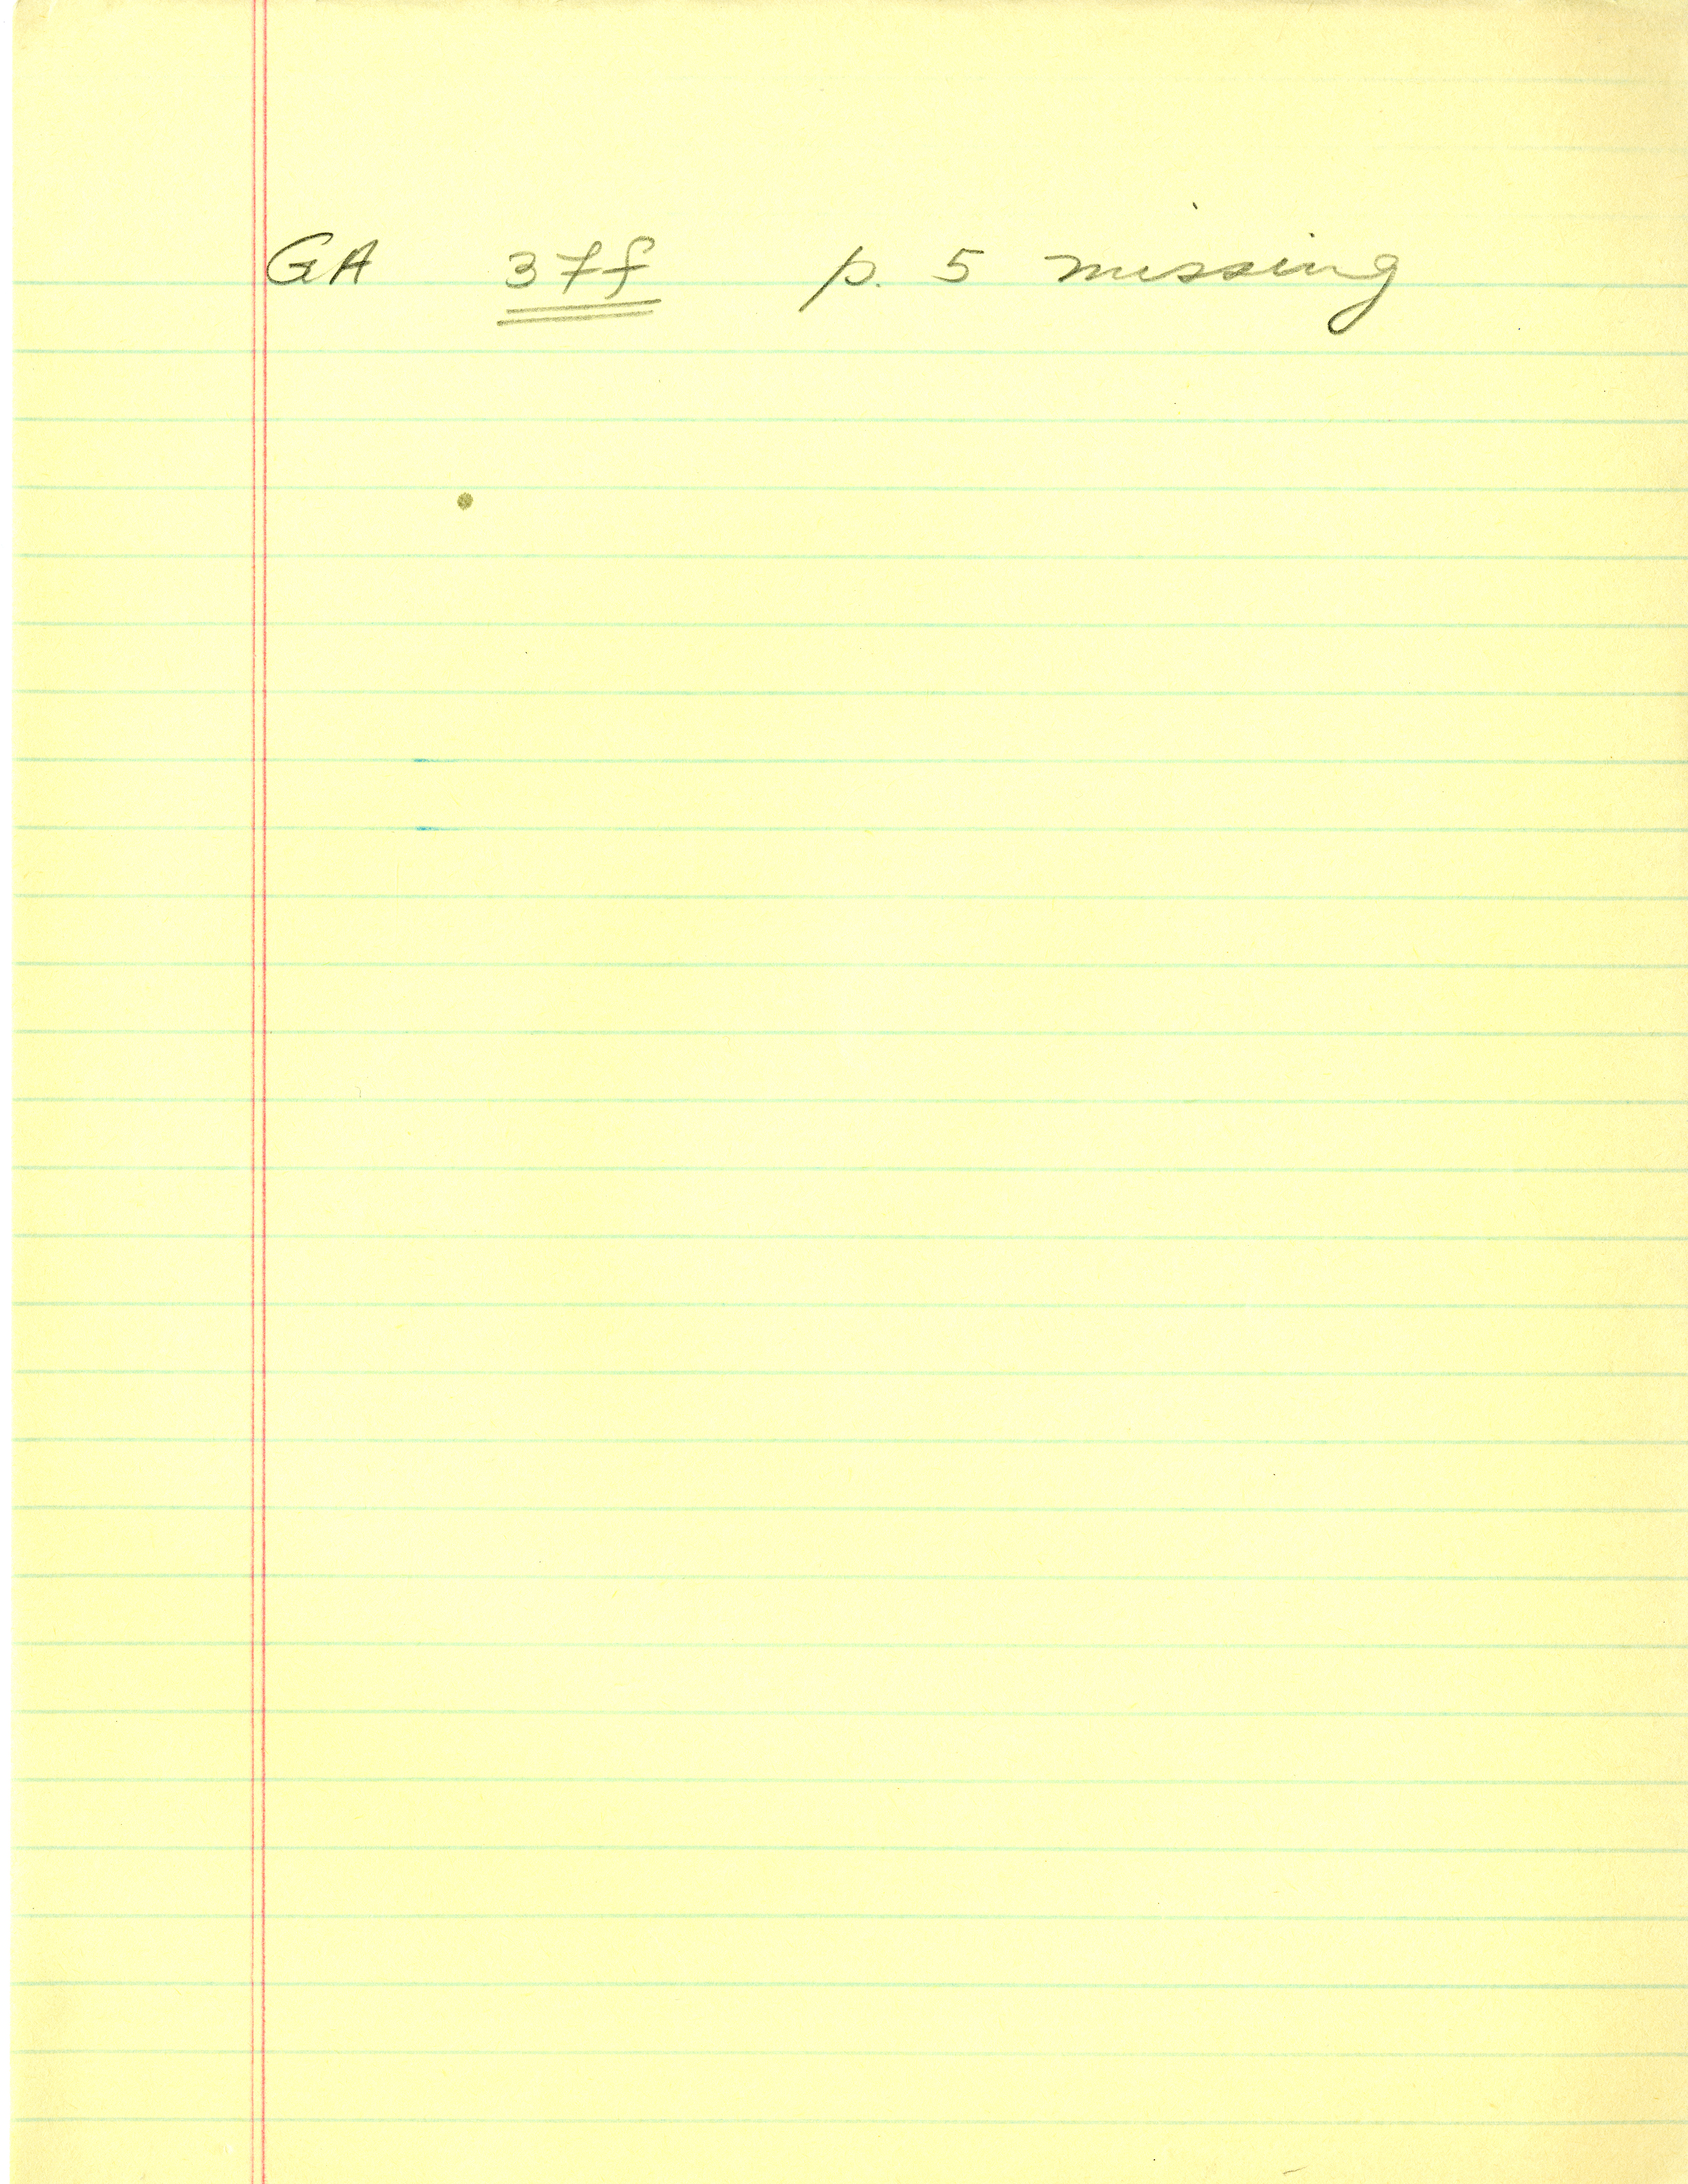 GA 37f p. 5 missing